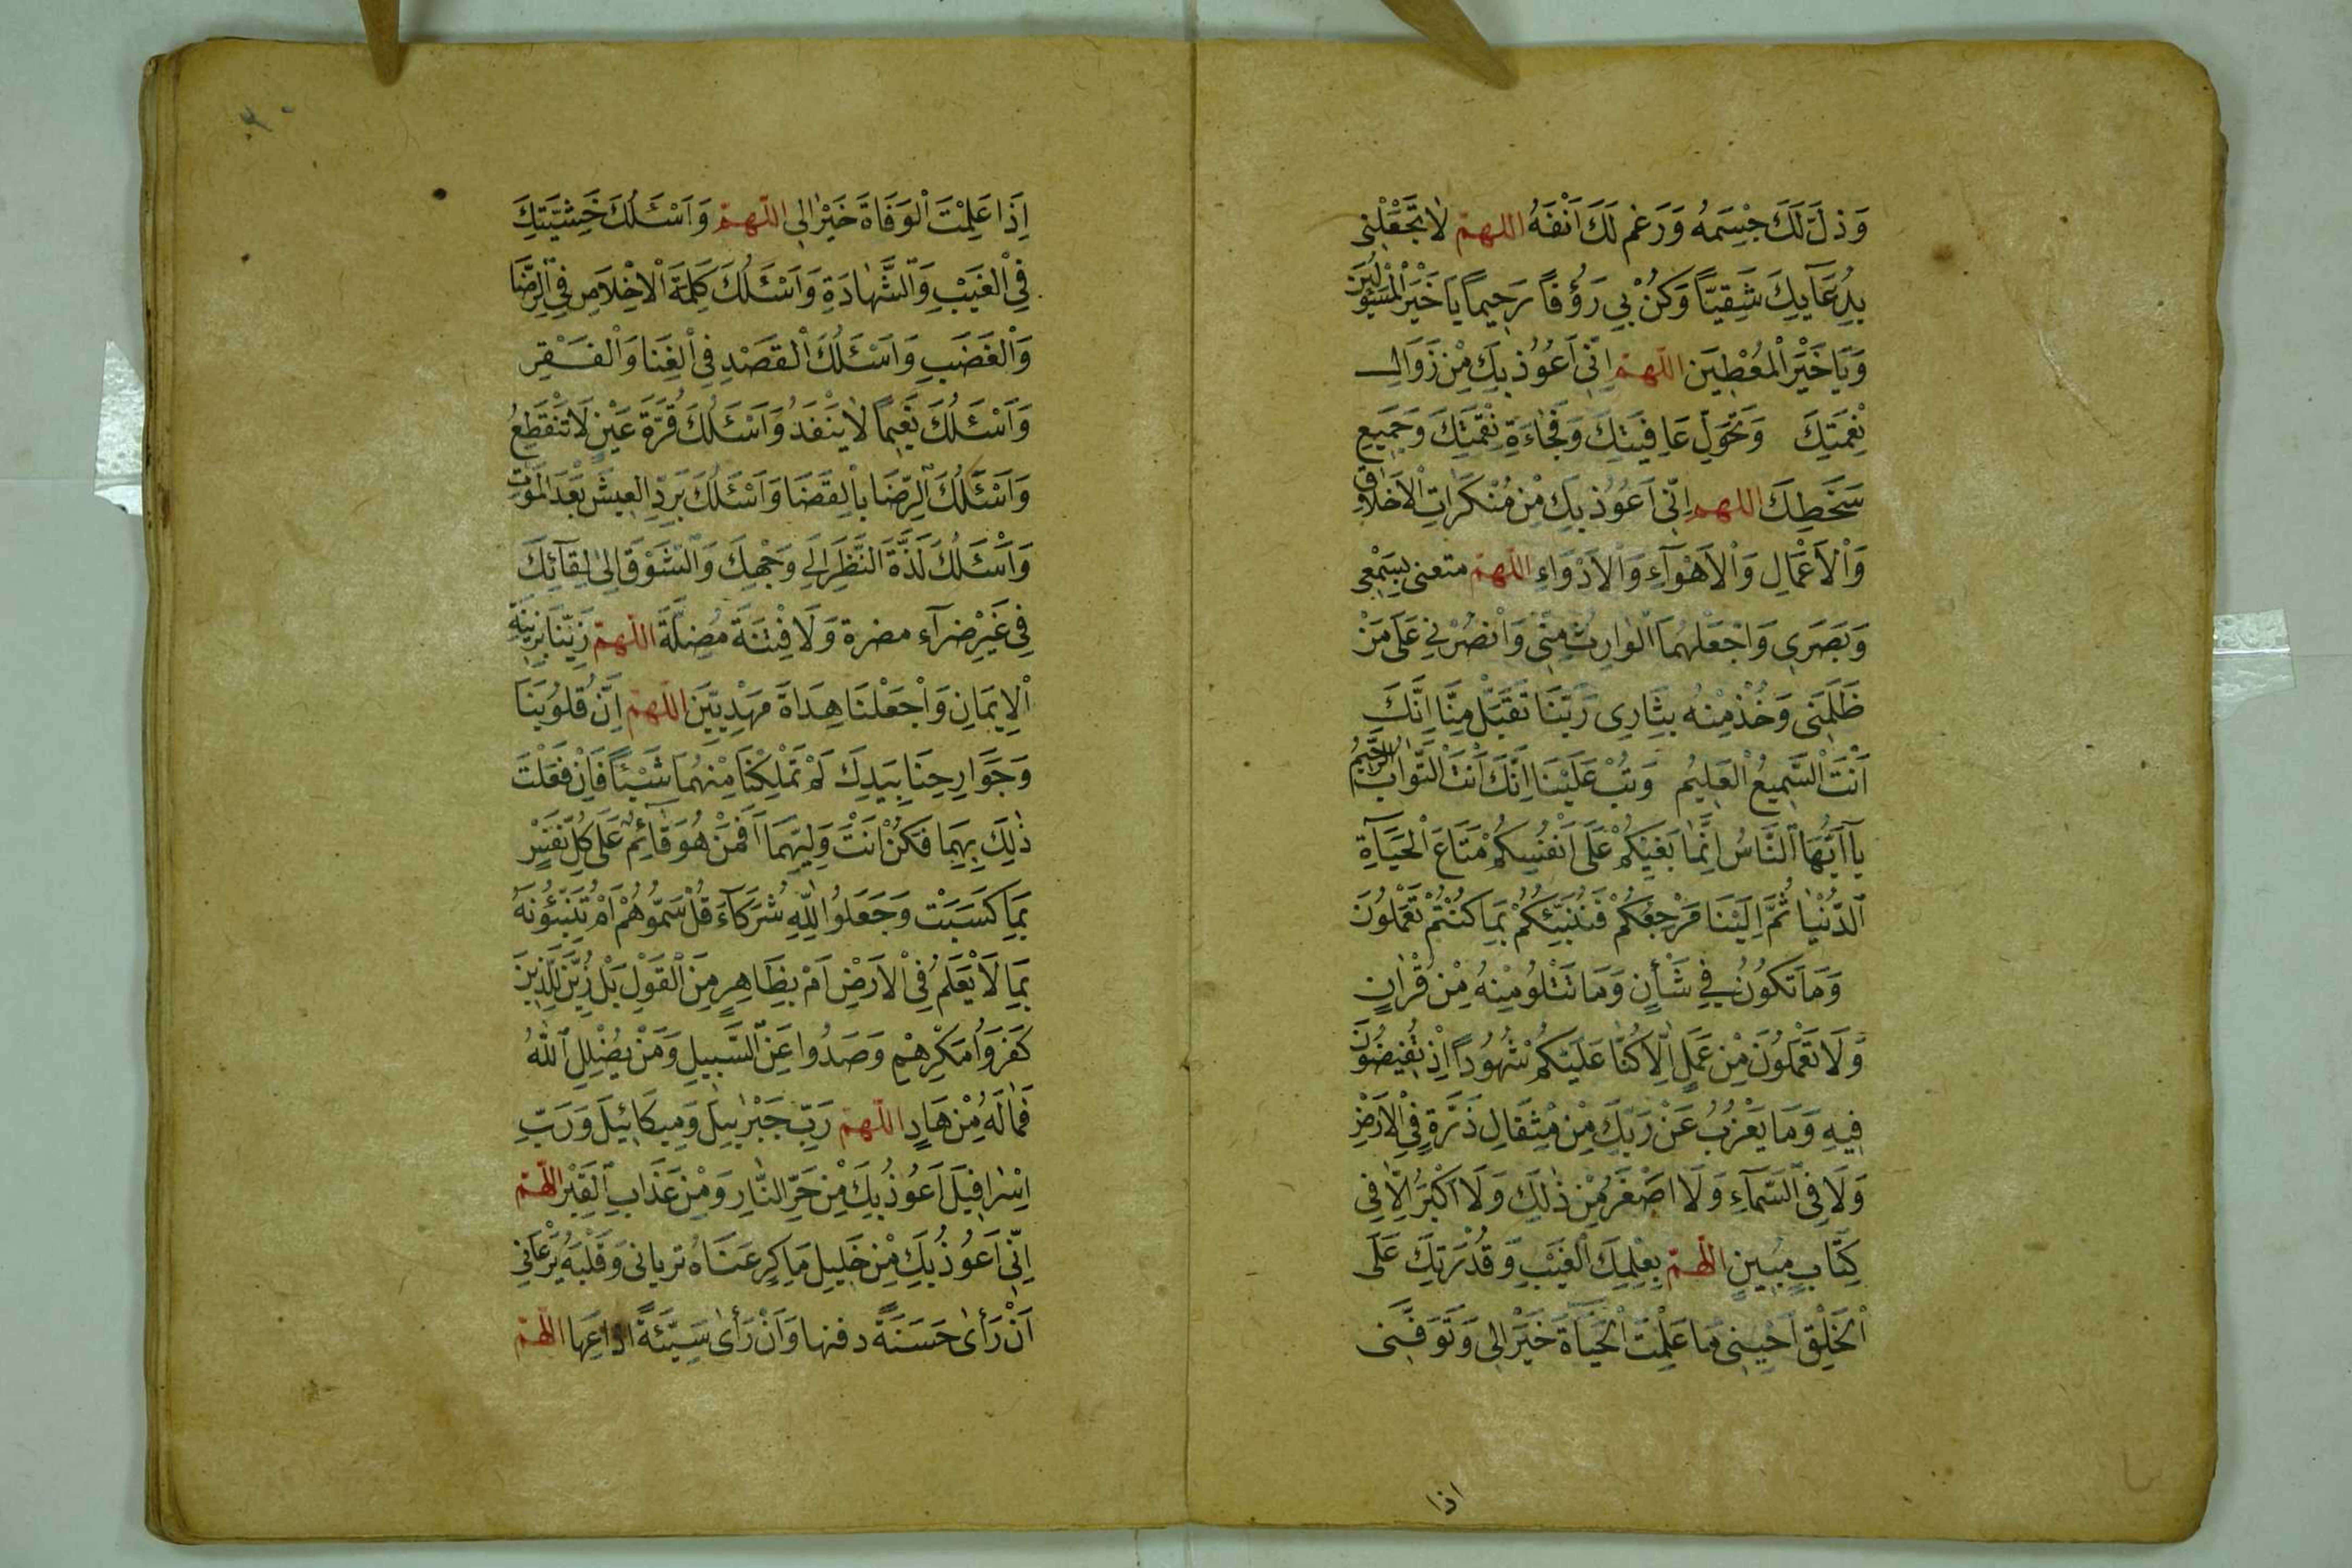 وَذَلَّ لَكَ جِسْمَهُ وَرَغِمَ لَكَ اَنْفَهُ اللهمّ لَا تَجْعَلْنِي
بِدُعَآيِكَ شَقِيًّا وَكُنْ بِي رَؤُفًا رَحِيمًا يَا خَيْرَ الْمَسْئُولِينَ
وَيَا خَيْرَ الْمُعْطِينَ اللّهمّ اِنّي اَعُوُذ بِكَ مِنْ زَوَالِ
نِعْمَتِكَ وَتَحَوّلِ عَافِيَتِكَ وَفُجَاءَةِ نِقْمَتِكَ وَجَمِيعِ
سَخَطِكَ اللهم اِنّي اَعُوُذ بِكَ مِنْ مُنْكَرَاتِ الْاَخْلَاقِ
وَالْاَعْمَالِ وَالْاَهْوَآءِ وَالْاَدْوَاءِ اللّهمّ متعنى بِسَمْعِي
وَبَصَرِي وَاجْعَلْهُمَا الْوٰارِثَ مِنّي وَانْصُرْنِي عَلَى مَنْ
ظَلَمَنِي وَخُذْ مِنْهُ بِثَارِى رَبَّنَا تَقَبَّلْ مِنَّا اِنَّكَ
اَنْتَ السَّمِيعُ الْعَلِيمُ وَتُبْ عَلَيْنَا اِنَّكَ اَنْتَ التَّوَّابُ الرَّحِيمُ
يَآ اَيُّهَا النَّاسُ اِنَّمٰا بَغْيُكُمْ عَلَى اَنْفُسِكُمْ مَتَاعَ الْحَيَاةِ
الدُّنْيٰا ثُمَّ اِلَيْنَا مَرْجِعُكُمْ فَنُنَبِّئُكُمْ بِمَا كُنْتُمْ تَعْمَلُونَ
وَمَا تَكُونُ فِي شَأْنٍ وَمَا تَتْلُو مِنْهُ مِنْ قُرْاٰنٍ
وَّلَا تَعْمَلُونَ مِنْ عَمَلٍ اِلَّا كُنَّا عَلَيْكُمْ شُهُودًا اِذْ تُفِيضُونَ
فِيهِ وَمَا يَعْزُبُ عَنْ رَبِّكَ مِنْ مِثْقَالِ ذَرَّةٍ فِي الْاَرْضِ
وَلَا فِي السَّمَآءِ وَلَا اَصْغَرَ مِنْ ذٰلِكَ وَلَا اَكْبَرَ اِلَّا فِي
كِتَابٍ مُبِينٍ اللّهمّ بِعِلْمِكَ الْغَيْبِ وَقُدْرَتِكَ عَلَى
الْخَلْقِ اَحْيِنِي مَا عَلِمْتَ الْحَيَاةَ خَيْرًا لِى وَتَوَفَّنِى
اذا
اِذَا عَلِمْتَ الْوَفَاةَ خَيْرًا لِى اللّهمّ وَاَسْئَلُكَ خَشْيَتِكَ
فِي الْغَيْبِ وَالشَّهَادَةِ وَاَسْئَلُكَ كَلِمَةَ الْاِخْلَاصِ فِي الرِّضَا
وَالْغَضَبِ وَاَسْئَلُكَ الْقَصْدِ فِي الْغِنَا وَالْفَقْرِ
وَاَسْئَلُكَ نَعِيمًا لَا يَنْفَدُ وَاَسْئَلُكَ قُرَّةَ عَيْنٍ لَا تَنْقَطِعُ
وَاَسْئَلُكَ الرِّضَا بِالْقَضَا وَاَسْئَلُكَ بَرْدِ الْعِيشِ بَعْدَ الْمَوْتِ
وَاَسْئَلُكَ لَذَّةَ النَّظَرِ اِلَى وَجْهِكَ وَالشَّوْقَ اِلَى لِقَائِكَ
فِى غَيْرِ ضرآء مضرة وَلَا فِتْنَةً مُضِلَّةً اللّهمّ زَيِّنَّا بِزِينَةِ
الْاِيمَانِ وَاجْعَلْنَا هِدَاةً مَهْدِيِّينَ اللّهمّ اِنَّ قُلُوبَنَا
وَجَوَارِحِنَا بِيَدِكَ لَمْ تُمَلِّكْنَا مِنْهُمَا شَيْئًا فَاِنْ فَعَلْتَ
ذٰلِكَ بِهِمَا فَكُنْ اَنْتَ وَلِيَّهُمَا اَفَمَنْ هُوَ قَآئِمٌ عَلَى كُلِّ نَفْسٍ
بِمَا كَسَبَت وَجَعَلُوا لِلّهِ شُرَكَآءَ قُلْ سَمُّوهُمْ اَمْ تُنَبِّؤُنَهُ
بِمَا لَا يَعْلَمُ فِي الْاَرْضِ اَمْ بِظَاهِرٍ مِنَ الْقَوْلِ بَلْ زُيِّنَ لِلَّذِينَ
كَفَرُوا مَكْرِهُمْ وَصَدُّوا عَنِ السَّبِيلِ وَمَنْ يُضْلِلِ اللّهُ
فَمَا لَهُ مِنْ هَادٍ اللّهمّ رَبِّ جَبْرَبِيلَ وَمِيكَائِيلَ وَرَبِّ
اِسْرَافِيلَ اَعُوُذُ بِكَ مِنْ حَرِّ النَّارِ وَمِنْ عَذَابِ الْقَبْرِ اللّهمّ
اِنّي اَعُوُذُ بِكَ مِنْ خَلِيلٍ مَاكِرٍ عَيْنَاهُ تريانى وَقَلْبَهُ يَرْعَانِي
اَنْ رَأىٰ حَسَنَةً دفنها وَاَنْ رَأىٰ سَيِّئَةً اذاعَها اللّهمّ